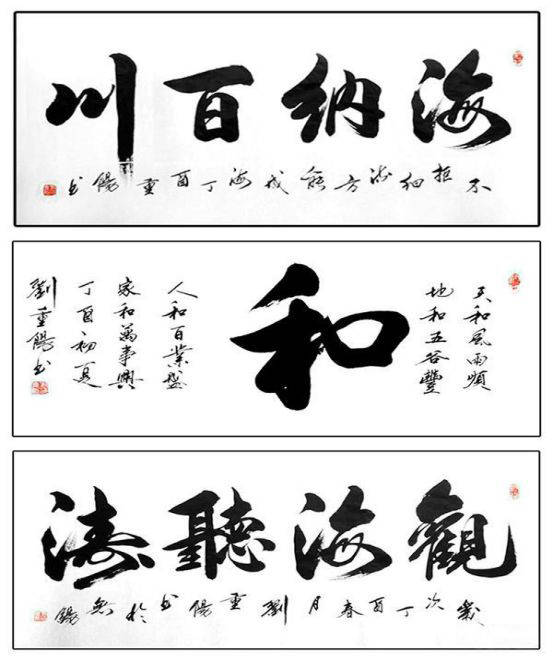 海纳百川
不拒细流方能成海丁酉重阳书
天和风雨顺
地和五谷豐
和
人和百業盛
家和萬事興
丁酉初夏
劉重陽书
觀海聽濤
歲次丁酉春月劉重陽书於